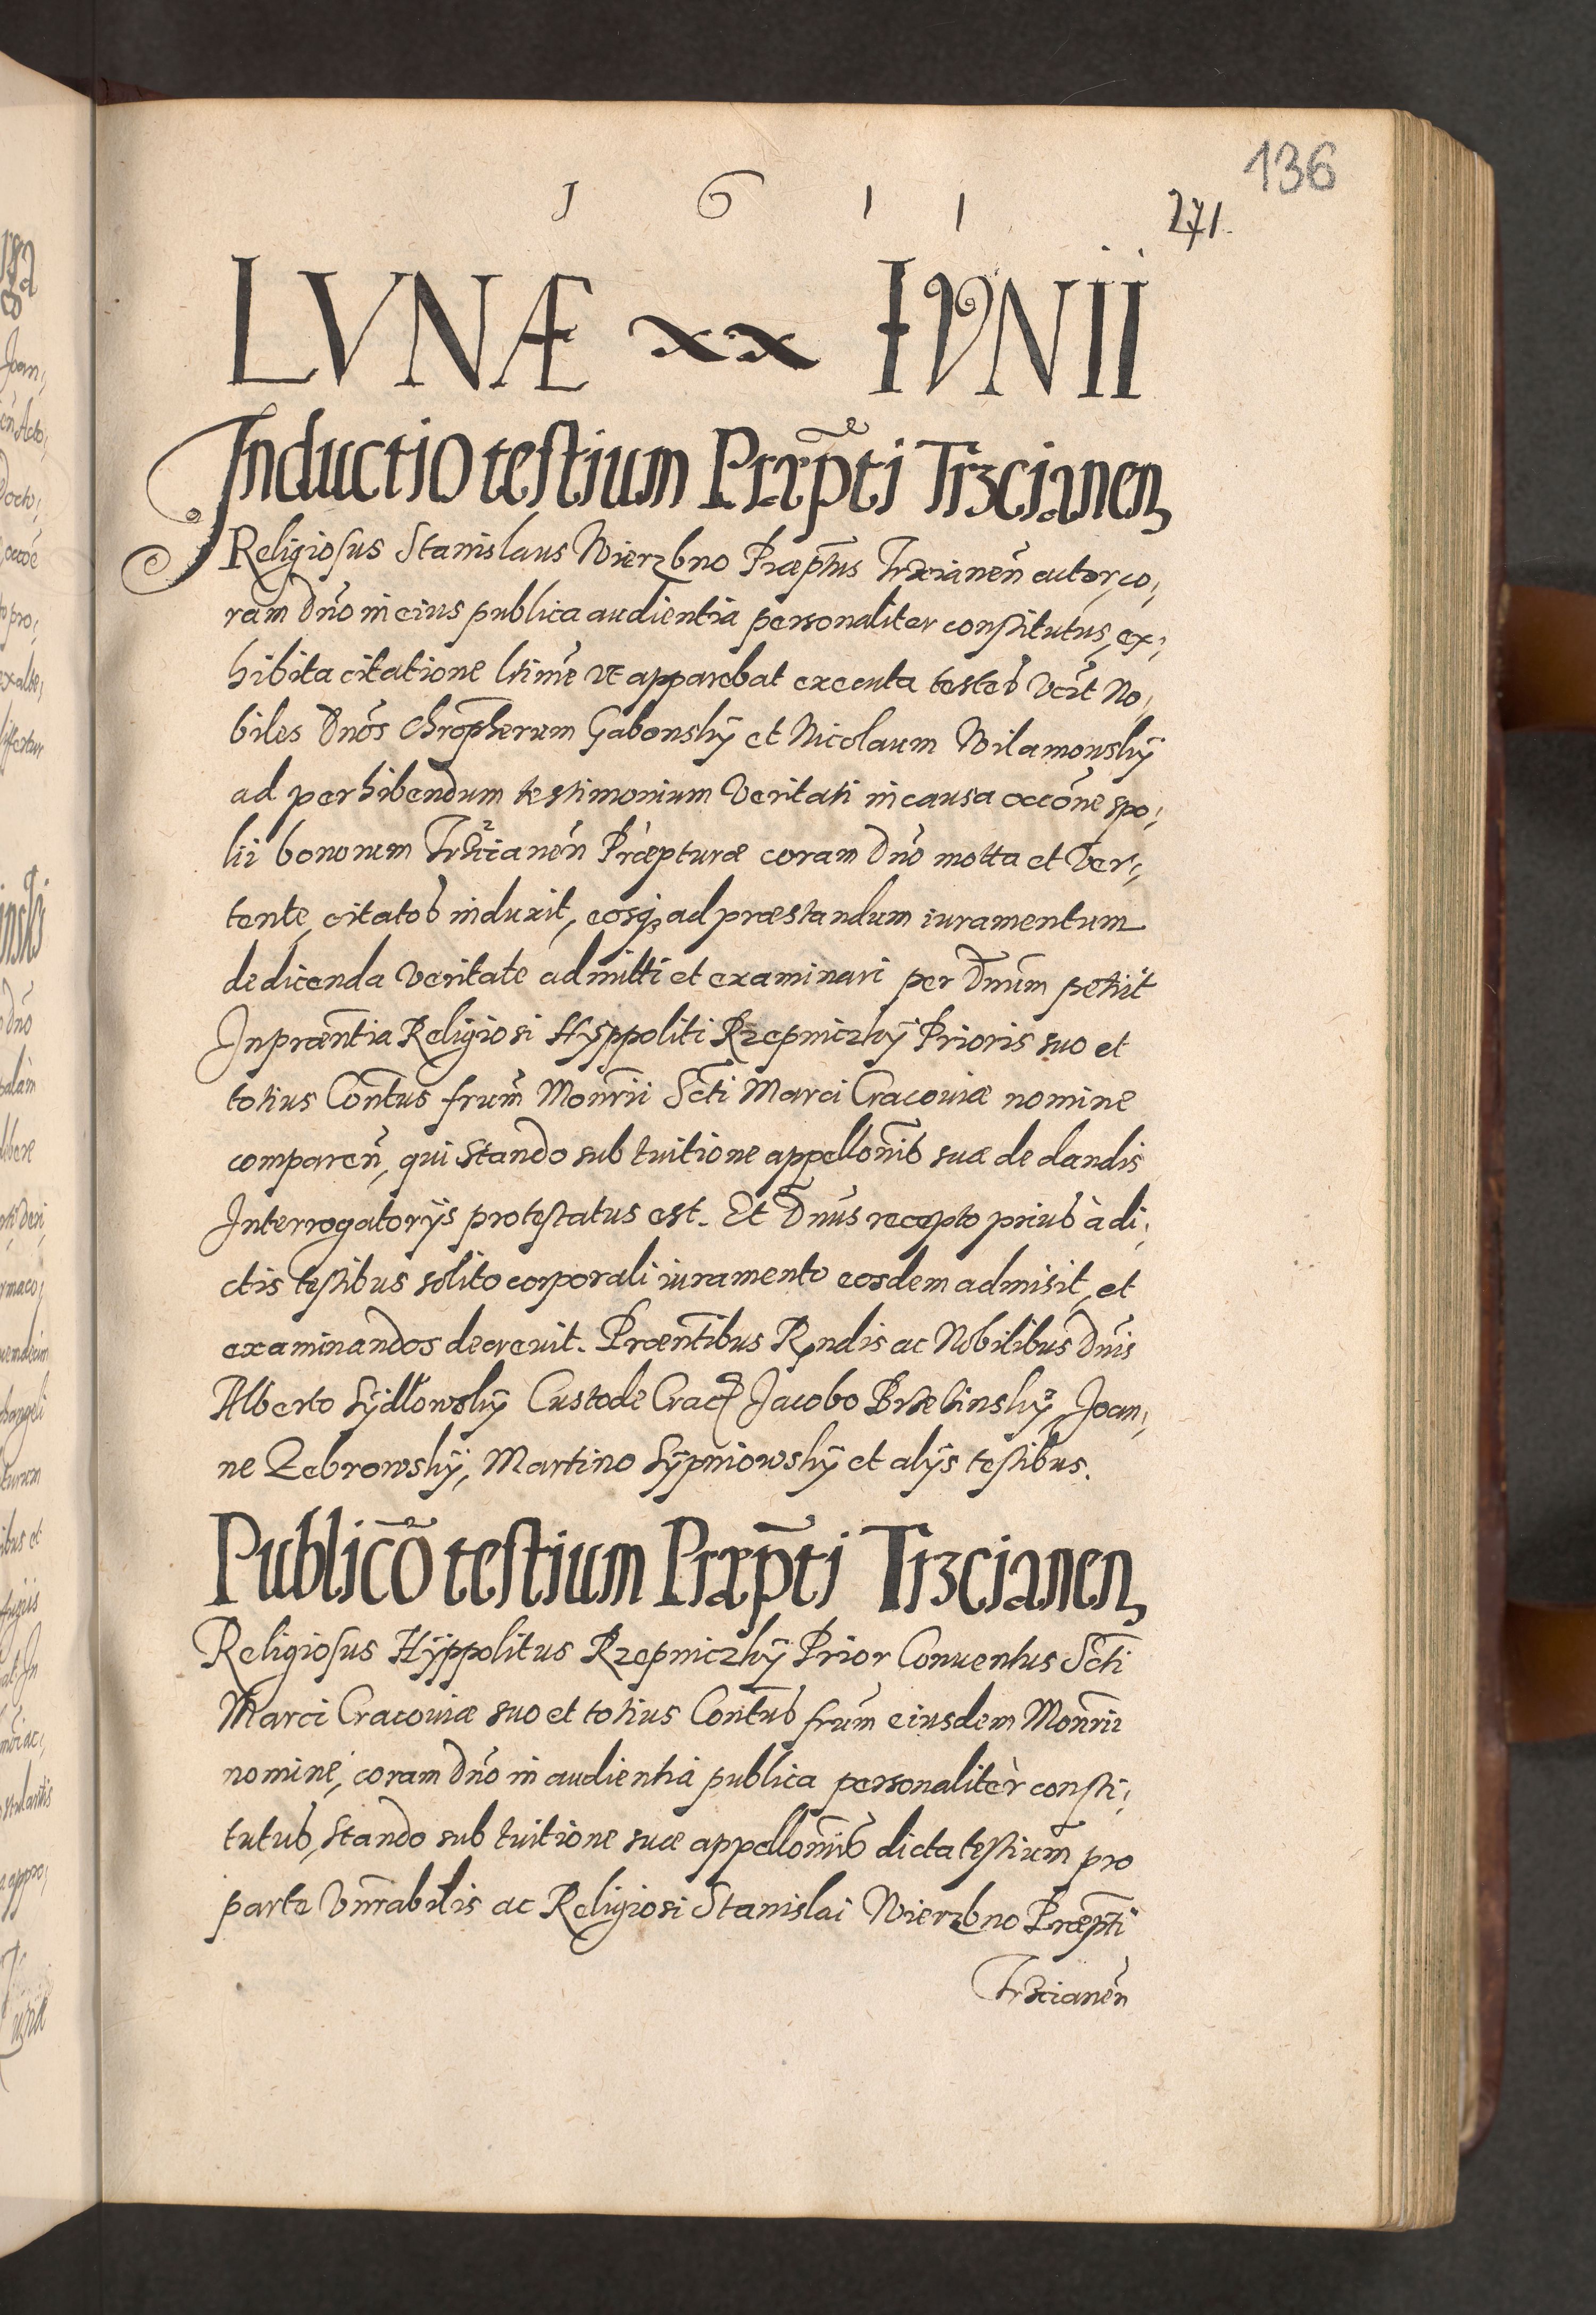 136
1 6 1 1
271.
LVNÆ xx IVNII
Inductio testium Præp̃ti Trzcianen̄
Religiosus Stanislaus Wierzbno Præp̃tus Trzcianen̄ actor co,
ram Dn̄o in eius publica audientia personaliter constitutus, ex,
hibita citatione l̃time vt apparebat executa testes vc̃t No,
biles Dn̄os Chrop̃herum Gabonsky et Nicolaum Wilamowsky
ad perhibendum testimonium veritati in causa occ̃one spo,
lii bonorum Trzcianen̄ Præpturæ coram Dn̄o motta et ver,
tente, citatos induxit, eosq3 ad præstandum iuramentum
de dicenda veritate admitti et examinari per Dn̄um petiit
In præn̄tia Religiosi Hyppoliti Rzepniczky Prioris suo et
totius Con̄tus frum̄ Mon̄rii Sc̃ti Marci Cracoviæ nomine
comparen̄, qui stando sub tuitione appellon̄is suæ de dandis
Interrogatoriis protestatus est. Et Dn̄us recepto prius à di,
ctis testibus solito corporali iuramento eosdem admisit, et
examinandos decrevit. Præn̄tibus Rndis ac Nobilibus Dn̄is
Alberto Sydłowsky Custode Crac. Jacobo Brzezinsky, Joan,
ne Zebrowsky, Martino Sypniowsky et alijs testibus.
Publicc̃o testium Præp̃ti Trzcianen̄
Religiosus Hyppolitus Rzepniczky Prior Conventus Sc̃ti
Marci Cracoviæ suo et totius Con̄tus frum̄ eiusdem Mon̄rii
nomine, coram Dn̄o in audientia publica personalitèr consti,
tutus, stando sub tuitione suæ appellon̄is dicta testium pro
parte Vn̄rabilis ac Religiosi Stanislai Wierzbno Præp̃ti
Trzcianen̄